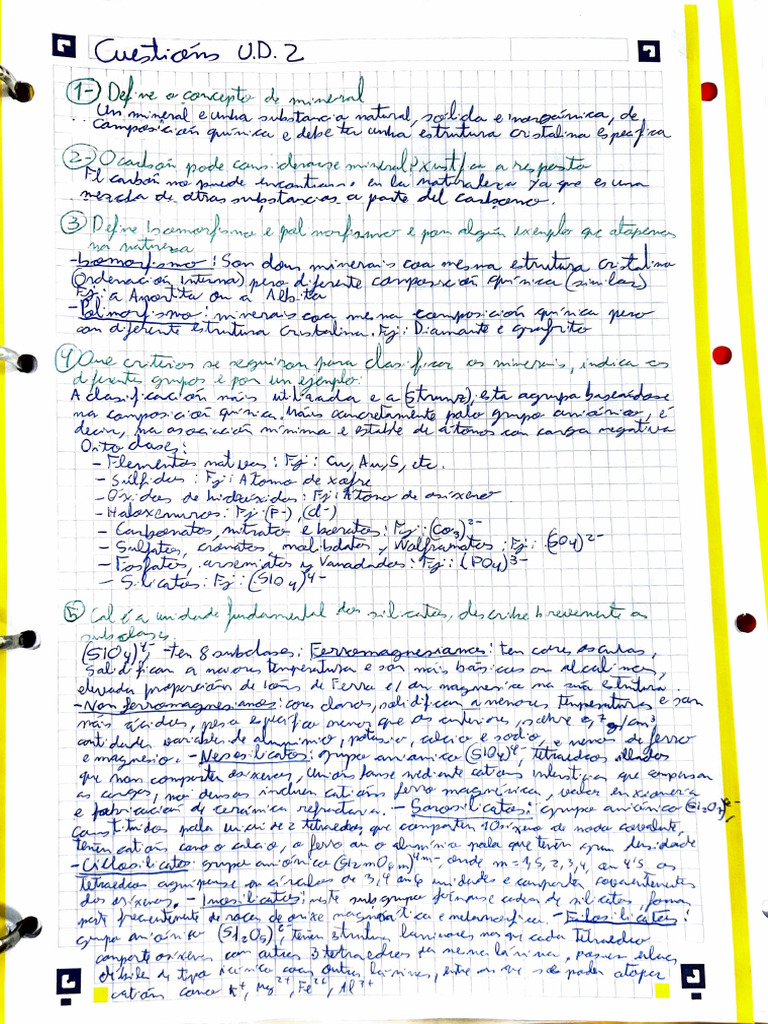 Cuestións U.D. 2
1-) Define o concepto de mineral
Un mineral e unha substancia natural, sólida e inorgánica, de
composición química e debe ter unha estrutura cristalina específica
2- O carbón pode considerarse mineral? Xustifica a resposta
El carbón no puede encontrarse en la naturaleza ya que es una
mezcla de otras substancias a parte del carbono.
3 Define Isomorfismo e polimorfismo e pon algún exemplo que atopemos
na natureza
- Isomorfismo: Son dous minerais coa mesma estrutura cristalina
(Ordenación Interna) pero diferente composición química (similar)
Ej: a Anortita ou a Albita
- Polimorfismo: minerais coa mesma composición química pero
con diferente estrutura cristalina. Ej: Diamante e grafito
4 Que criterios se seguiron para clasificar os minerais, indica os
diferentes grupos e pon un exemplo:
A clasificación máis utilizada e a (Strunz), esta agrupa baseandose
na composición química. Máis concretamente polo grupo aniónico, é
decir, na asociación mínima e estable de átomos con carga negativa
Oito clases:
- Elementos nativos: Ej: Cu, Au, S, etc.
- Sulfidos: Ej: Atomo de xofre
- Oxidos de hidroxidos: Ej: Atomo de osixeno
- Haloxenuros: Ej: (F-), (cl-)
- Carbonatos, nitratos e boratos: Ej: (CO3)²⁻
- Sulfatos, cromatos, molibdatos y Wolframatos: Ej: (SO4)²⁻
- Fosfatos, arsematos y Vanadados: Ej: (PO4)³⁻
- Silicatos: Ej: (SIO4)⁴⁻
5 Cal é a unidade fundamental dos silicatos, describe brevemente as
subclases.
(SIO4)⁴⁻ - ten 8 subclases: Ferromagnesianos: ten cores oscuras,
solidifican a maiores temperatura e son máis básicas ou alcalinas,
elevada proporción de ións de Ferro e/ou magnesio na súa estrutura.
- Non ferromagnesianos: cores claros, solidifican a menores temperaturas e son
máis ácidos, peso específico menor que os anteriores, sobre 2,7 g/cm³
cantidades variable de aluminio, potasio, calcio e sodio, e menos de ferro
e magnesio. - Nesosilicatos: grupo aniónico (SIO4)⁴⁻, tetraedros illados
que non comparten osixenos, unions fanse mediante cations que compensan
as cargas, moi densos incluen catións ferro magnésica, valor en xoiería
e fabricación de cerámica refractaria. - Sorosilicatos: grupo aniónico (Si2O7)⁶⁻,
constituidos pola unión de 2 tetraedros que comparten 1 Osixeno de modo covalente,
teñen catións como o calcio, o ferro ou o aluminio polo que teñen gran densidade
- Ciclosilicatos: grupo aniónico onde m = 2, 3, 4, os
tetraedros agrúpense en círculos de 3, 4 ou 6 unidades e comparten covalentemente
dos osixenos. - Inosilicatos: neste subgrupo fórmanse cadeas de silicatos, forman
parte frecuentemente de rocas de orixe magmática e metamórfica. - Filosilicatos:
grupo aniónico (SI2O5)²⁻, teñen estrutura laminares nas que cada tetraedro
comparte osixenos con outros 3 tetraedros da mesma lámina, posúen enlaces
débiles de tipo iónico coas outras láminas, entre as que se poden atopar
catións como K⁺, Mg²⁺, Fe²⁺, Al³⁺